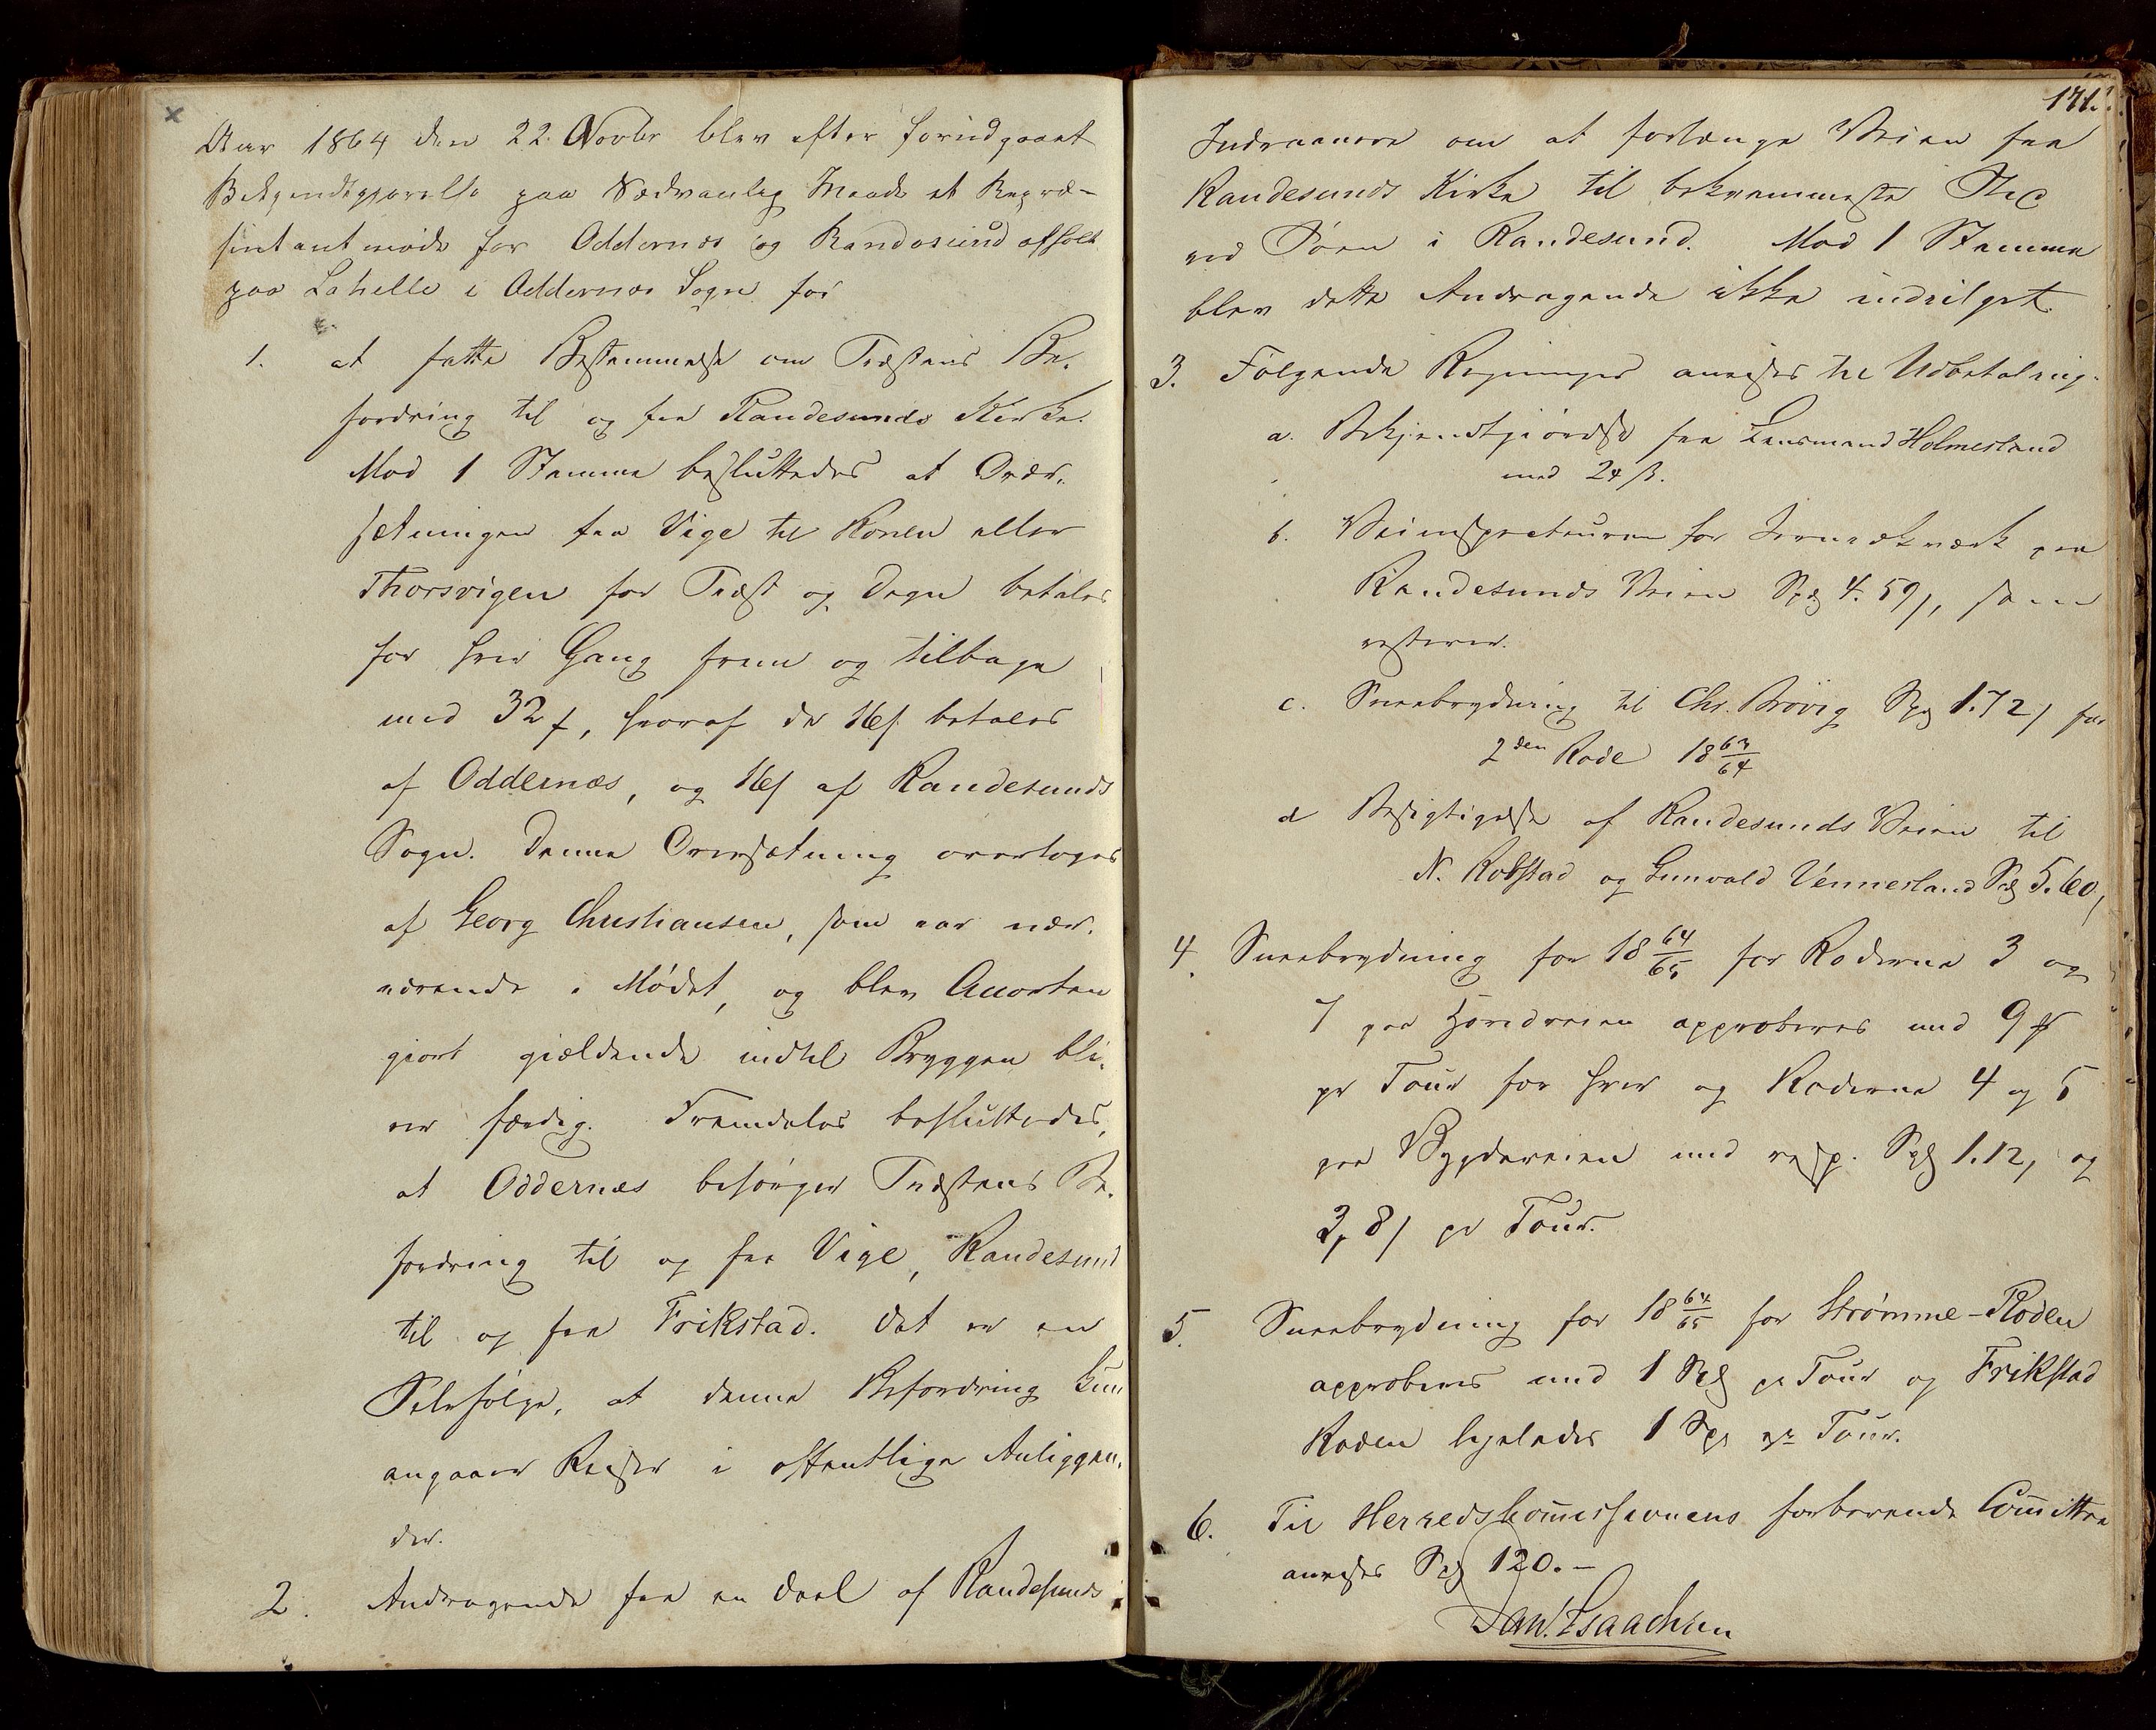 Aar 1864 den 22. Novbr blev efter forudgaaet
Bekjendtgjørelse paa sædvanlig Maade et Repræ-
sentantmøde for Oddernes og Randesund afholdt
paa Lahelle i Oddernes Sogn for
1. at fatte Bestemmelse om Præstens Be-
fordring til og fra Randesunds Kirke.
Mod 1 Stemme besluttedes at Over-
sætningen fra Vige til Konen eller
Thorsvigen for Præst og Degn betales
for hver Gang frem og tilbage
med 32 s, hvoraf de 16 s betales
af Oddernæs, og 16 s af Randesunds
Sogn. Denne Oversætning overtoges
af Georg Christiansen, som var nær-
værende i Mødet, og blev Accorten
gjort gjældende indtil Bryggen bli-
ver færdig. Fremdeles besluttedes,
at Oddernæs besørger Præstens Be-
fordring til og fra Vige, Randesund
til og fra Frikstad. Det er en
Selvfølge, at denne Befordring kun
angaaer Reiser i offentlige Anliggen-
der.
2. Andragende fra en Deel af Randesunds
171.
Indvaanere om at forlænge Veien fra
Randesunds Kirke til bekvemmeste Sted
ved Søen i Randesund. Mod 1 Stemme
blev dette Andragende ikke indvilget.
3. Følgende Regninger anvises til Udbetaling.
a. Bekjendtgjørelse fra Lensmand Holmesland
med 24 ß.
b. Veiinspecteuren for paa
Randesunds Veien Spd 4. 59 s, som
resterer.
c. Sneebrydning til Chr. Brøvig Spd 1.72 s for
2den Rode 18 63/64
d Besigtigelse af Randesunds Veien til
N. Robstad og Gunvald Vennesland Spd 5. 60,
4. Sneebrydning for 18 64/65 for Roderne 3 og
7 paa Hovedveien approberes med 9 s
pr Tour for hver og Roderne 4 og 5
paa Bygdeveien med resp. Spd 1. 12, og
3, 8 s pr Tour.
5. Sneebrydning for 18 64/65 for Strømme-Roden
approberes med 1 Spd pr Tour og Frikstad
Roden ligeledes 1 Spd pr Tour.
6. Til Herredskommissionens forberende Committee
anvises Spd 120. -
Dan. Isaachsen